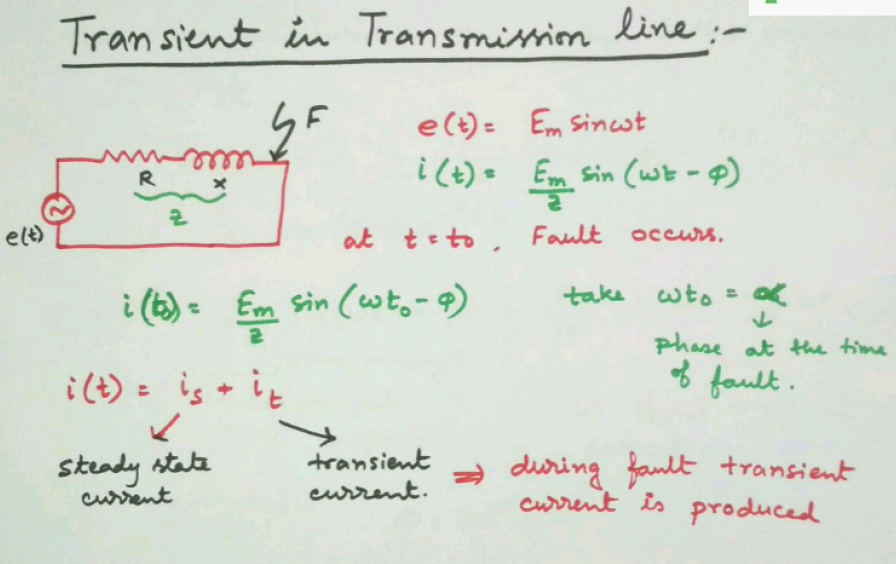 Transient in Transmission line :-
F
e(t) = Em sinωt
R X
Z
e(t)
i(t) = Em/Z sin (ωt - φ)
at t = t0 , Fault occurs.
i(t0) = Em/Z sin (ωt0 - φ)
take ωt0 = α
↓
Phase at the time
of fault.
i(t) = is + it
steady state
current
transient
current.
⇒ during fault transient
current is produced